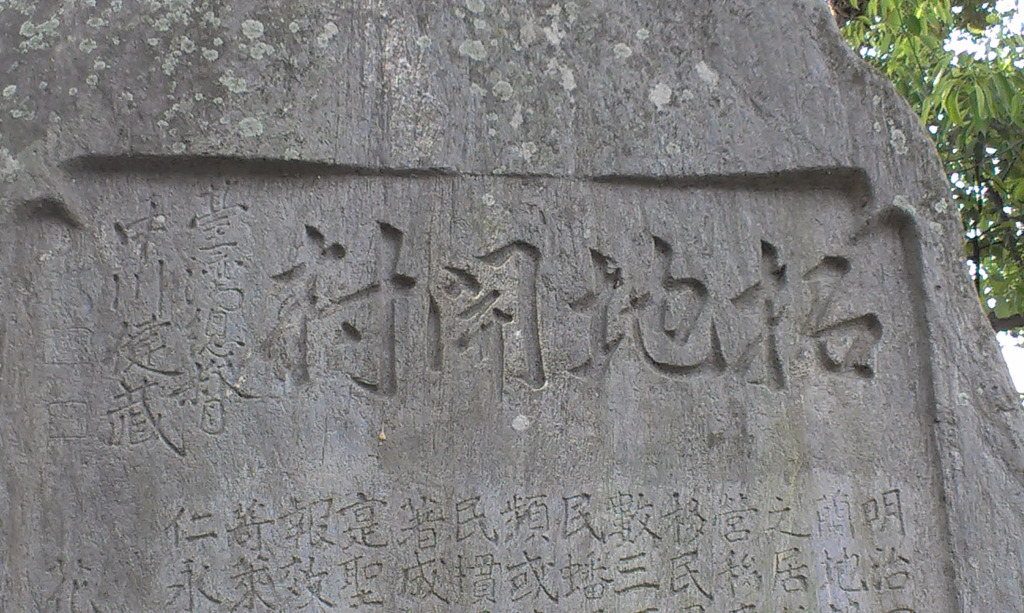 拓地開村
臺灣總督
中川健藏
明治
蘭地
之居
營移
移民
數三
民蟠
頻或
民慴
著成
寔聖
報效
萮來
仁永
花